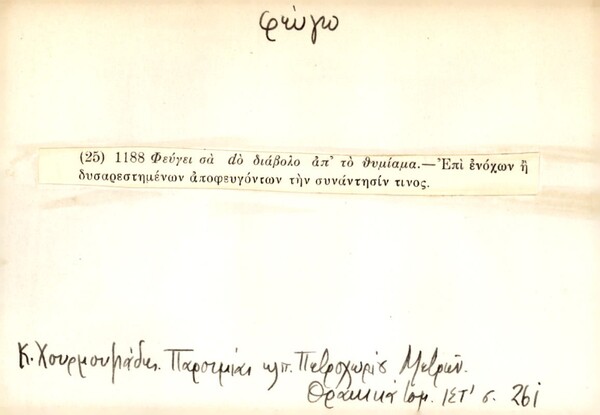 φεύγω
(25) 1188 Φεύγει σὰ dὸ διάβολο ἀπ' τὸ θυμίαμα.—Ἐπὶ ἐνόχων ἢ
δυσαρεστημένων ἀποφευγόντων τὴν συνάντησίν τινος.
Κ. Χουρμουζιάδης. Παροιμίαι κλπ. Πετροχωρίου Μετρῶν.
Θρακικά τομ. ΙΣΤ' σ. 261